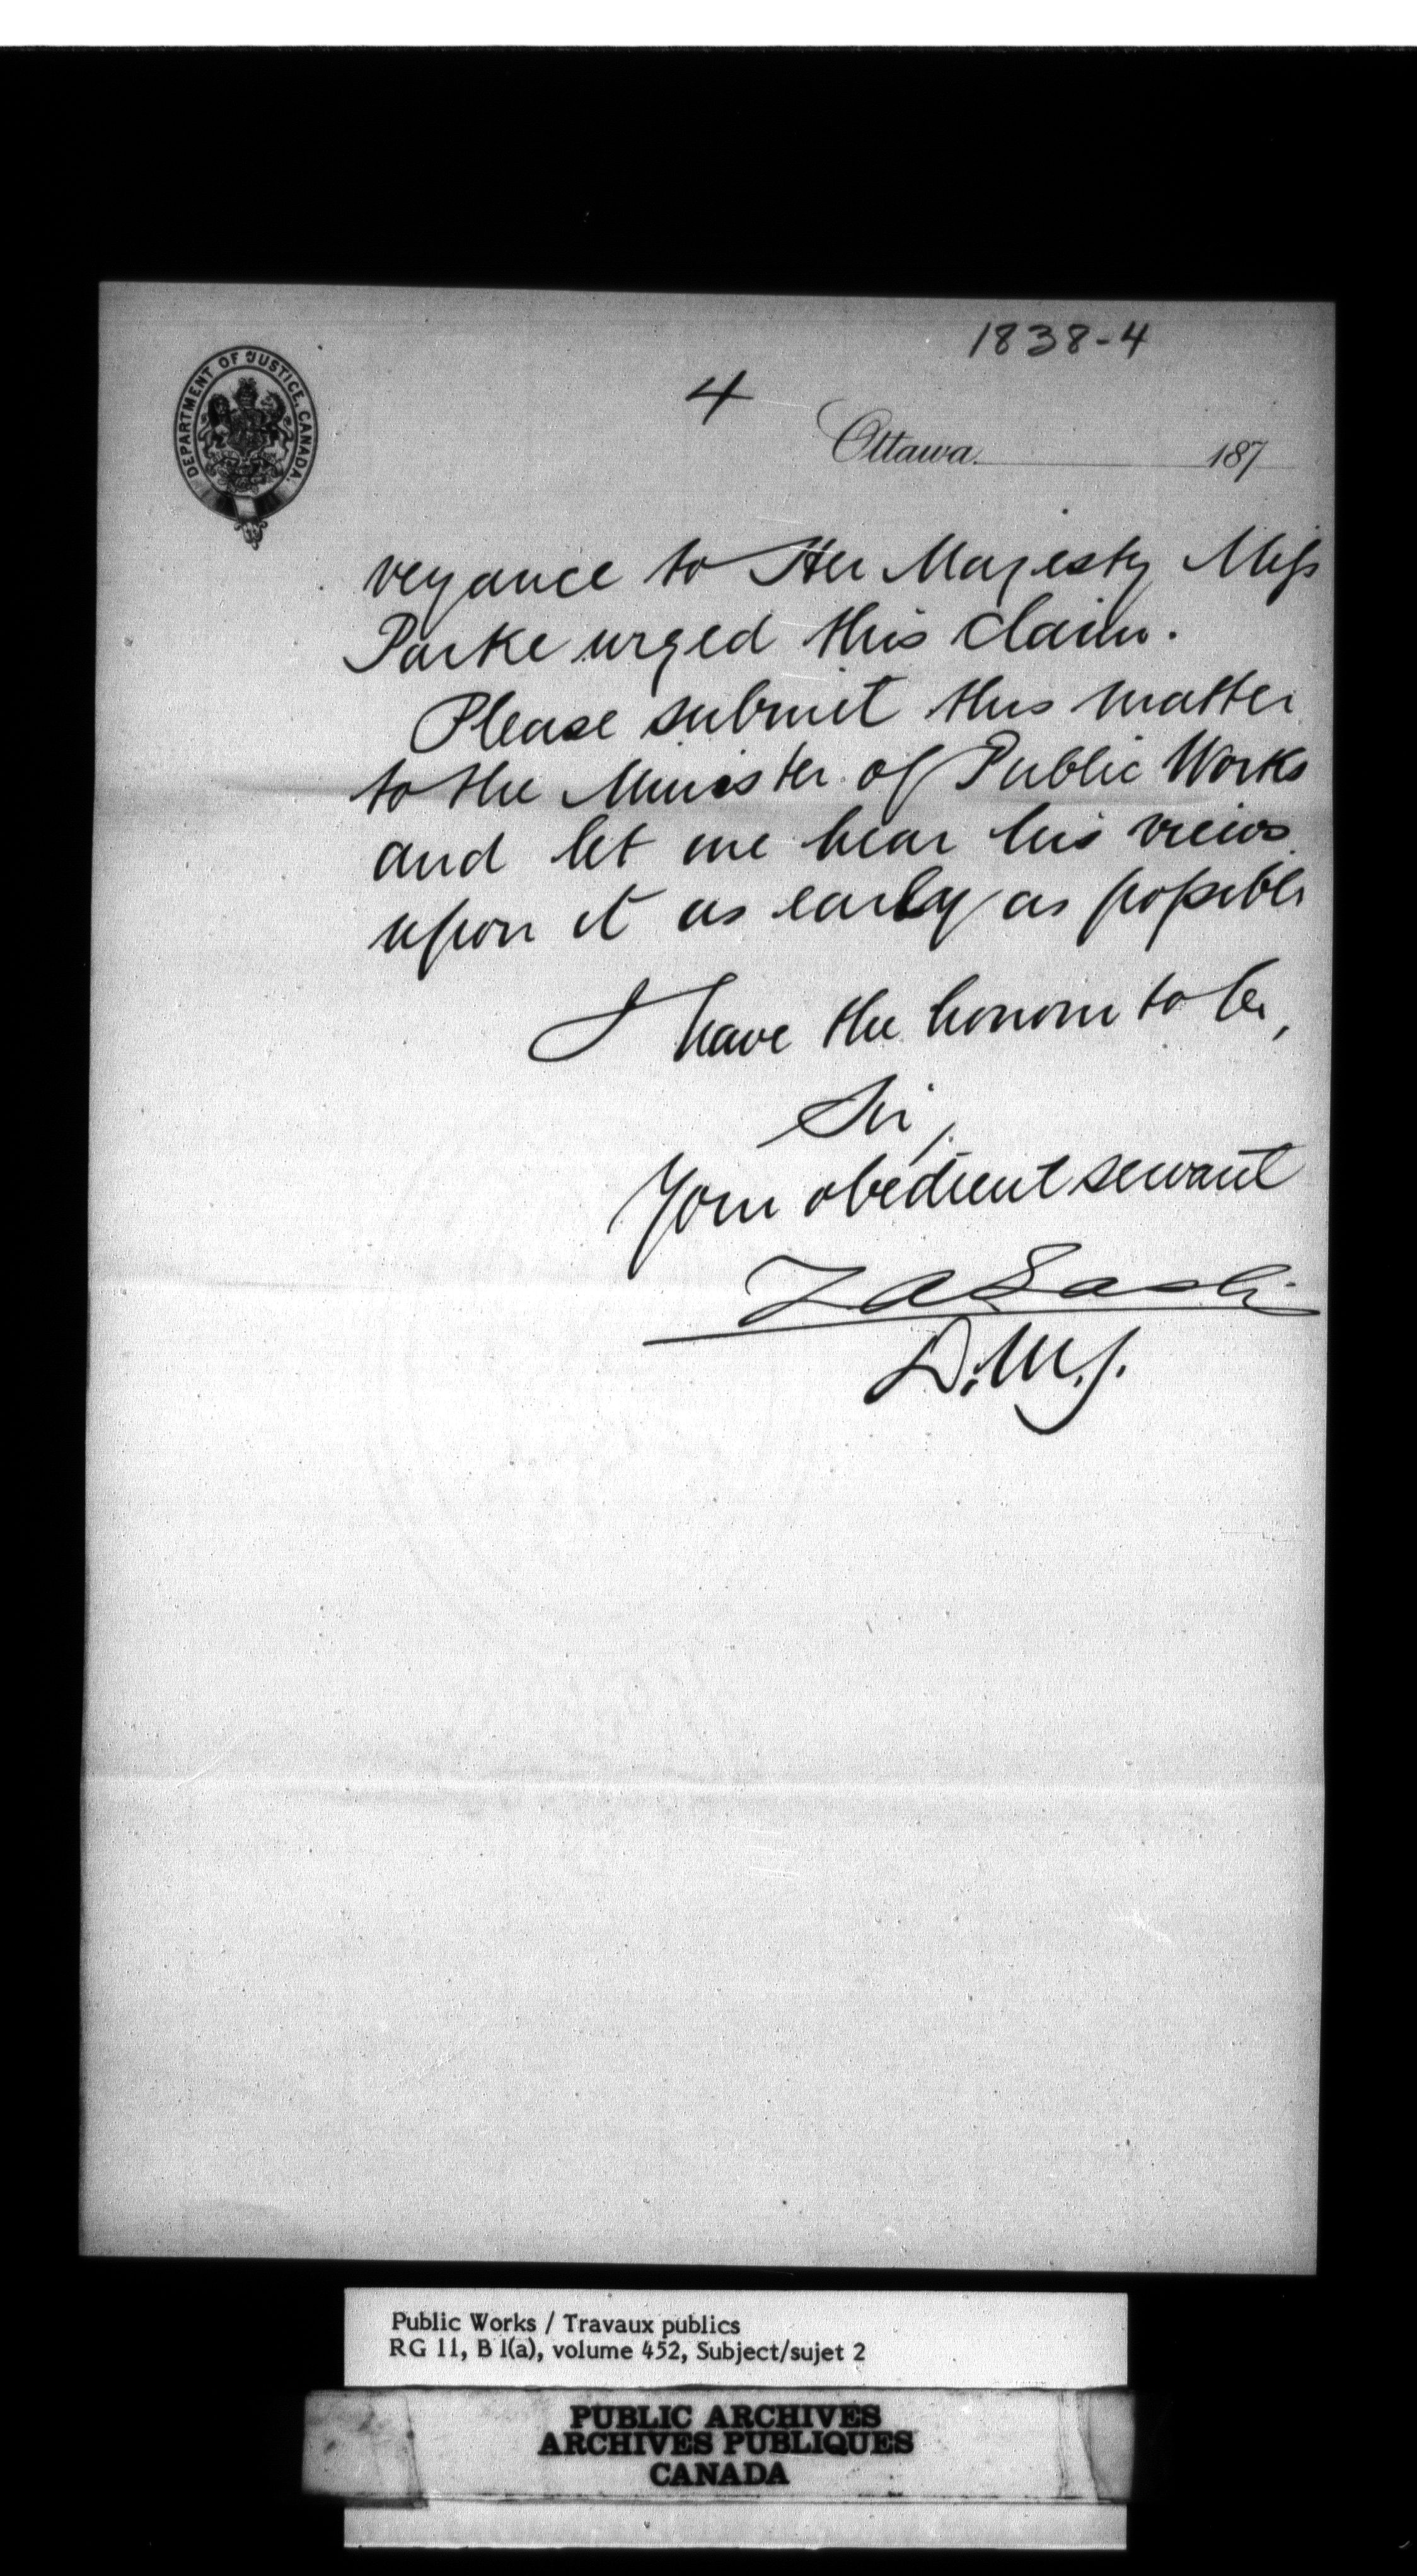 1838-4
4
DEPARTMENT OF JUSTICE, CANADA.
Ottawa. 187
veyance to Her Majesty Miss
Parke urged this claim.
Please submit this matter
to the Minister of Public Works
and let me hear his views
upon it as early as possible
I have the honour to be,
Sir,
Your obedient servant
ZALash
D.M.J.
Public Works / Travaux publics
RG 11, B 1(a), volume 452, Subject/sujet 2
PUBLIC ARCHIVES
ARCHIVES PUBLIQUES
CANADA